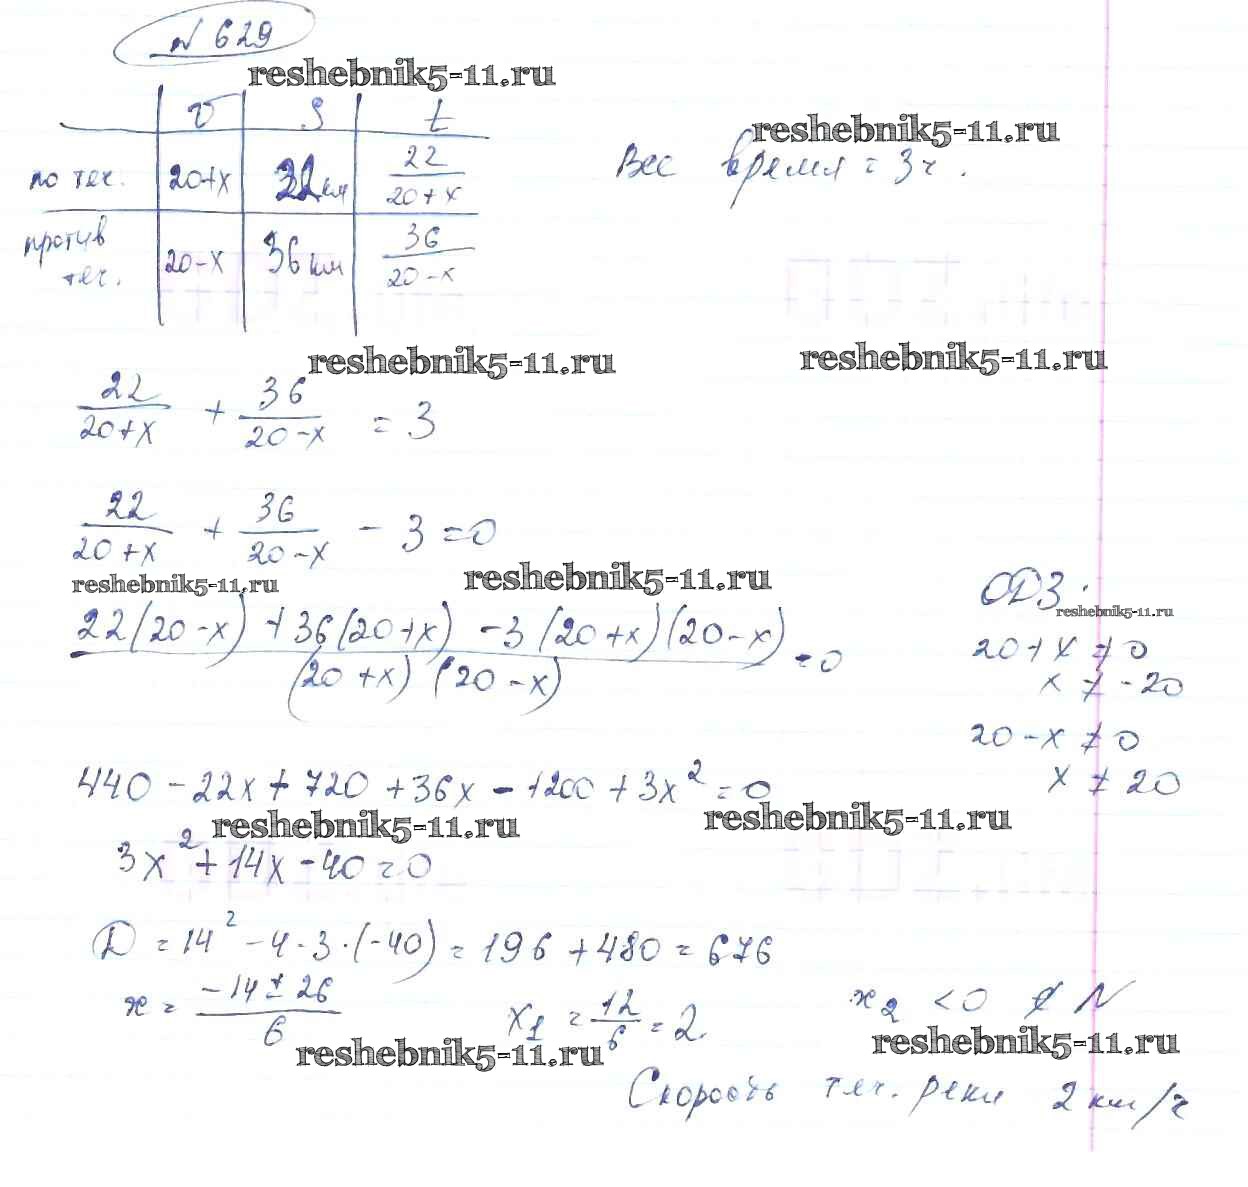 № 629
reshebnik5-11.ru
v S t
reshebnik5-11.ru
по теч. 20+x 22 км 22/(20+x)
Вес время = 3ч.
против теч. 20-x 36 км 36/(20-x)
reshebnik5-11.ru
reshebnik5-11.ru
22/(20+x) + 36/(20-x) = 3
22/(20+x) + 36/(20-x) - 3 = 0
reshebnik5-11.ru
reshebnik5-11.ru
ОДЗ:
reshebnik5-11.ru
(22(20-x) + 36(20+x) - 3(20+x)(20-x))/((20+x)(20-x)) = 0
20+x ≠ 0
x ≠ -20
20-x ≠ 0
x ≠ 20
440 - 22x + 720 + 36x - 1200 + 3x² = 0
reshebnik5-11.ru
reshebnik5-11.ru
3x² + 14x - 40 = 0
D = 14² - 4·3·(-40) = 196 + 480 = 676
x = (-14 ± 26)/6
x₁ = 12/6 = 2.
x₂ < 0 ∉ N
reshebnik5-11.ru
reshebnik5-11.ru
Скорость теч. реки 2 км/ч